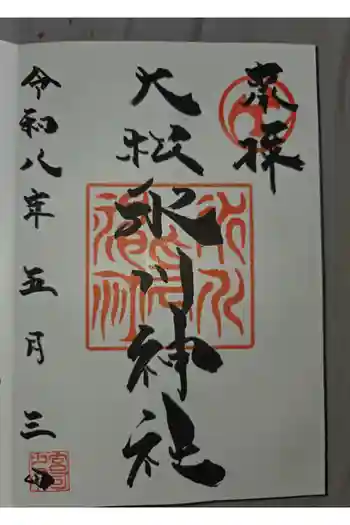 奉拝
大松氷川神社
令和八年五月三日